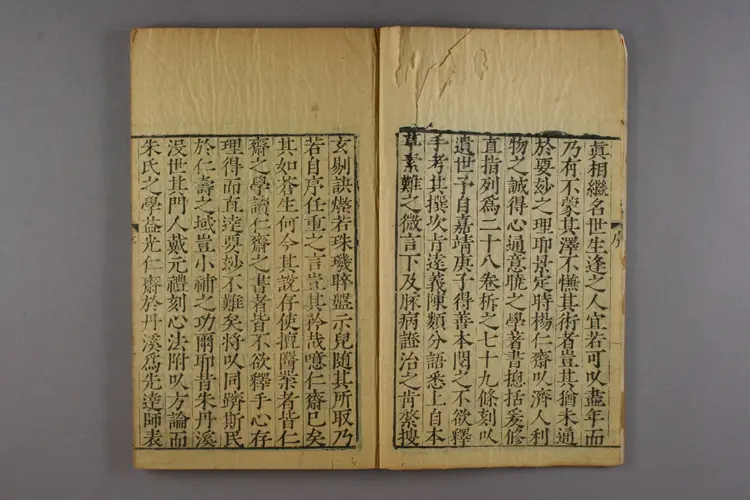 眞相繼名世生逢之人宜若可以盡年而
乃有不蒙其澤不憮其術者豈其猶未通
於要妙之理耶景定時楊仁齋以濟人利
物之誠得心通意曉之學著書揔括爰修
直指列爲二十八卷析之七十九條刻以
遺世予自嘉靖庚子得善本閱之不欲釋
手考其撰次肯達義陳類分語悉上自本
草素難之微言下及脉病證治之肯綮搜
序
玄剔訣燦若珠璣晬盤示兒随其所取乃
若自序任重之言豈其矜哉噫仁齋已矣
其如蒼生何今其說存使擅醫業者皆仁
齋之學讀仁齋之書者皆不欲釋手心存
理得而直達要妙不難矣將以同躋斯民
於仁壽之域豈小補之功爾耶昔朱丹溪
浸世其門人戴元禮刻心法附以方論而
朱氏之學益光仁齋於丹溪爲先達師表